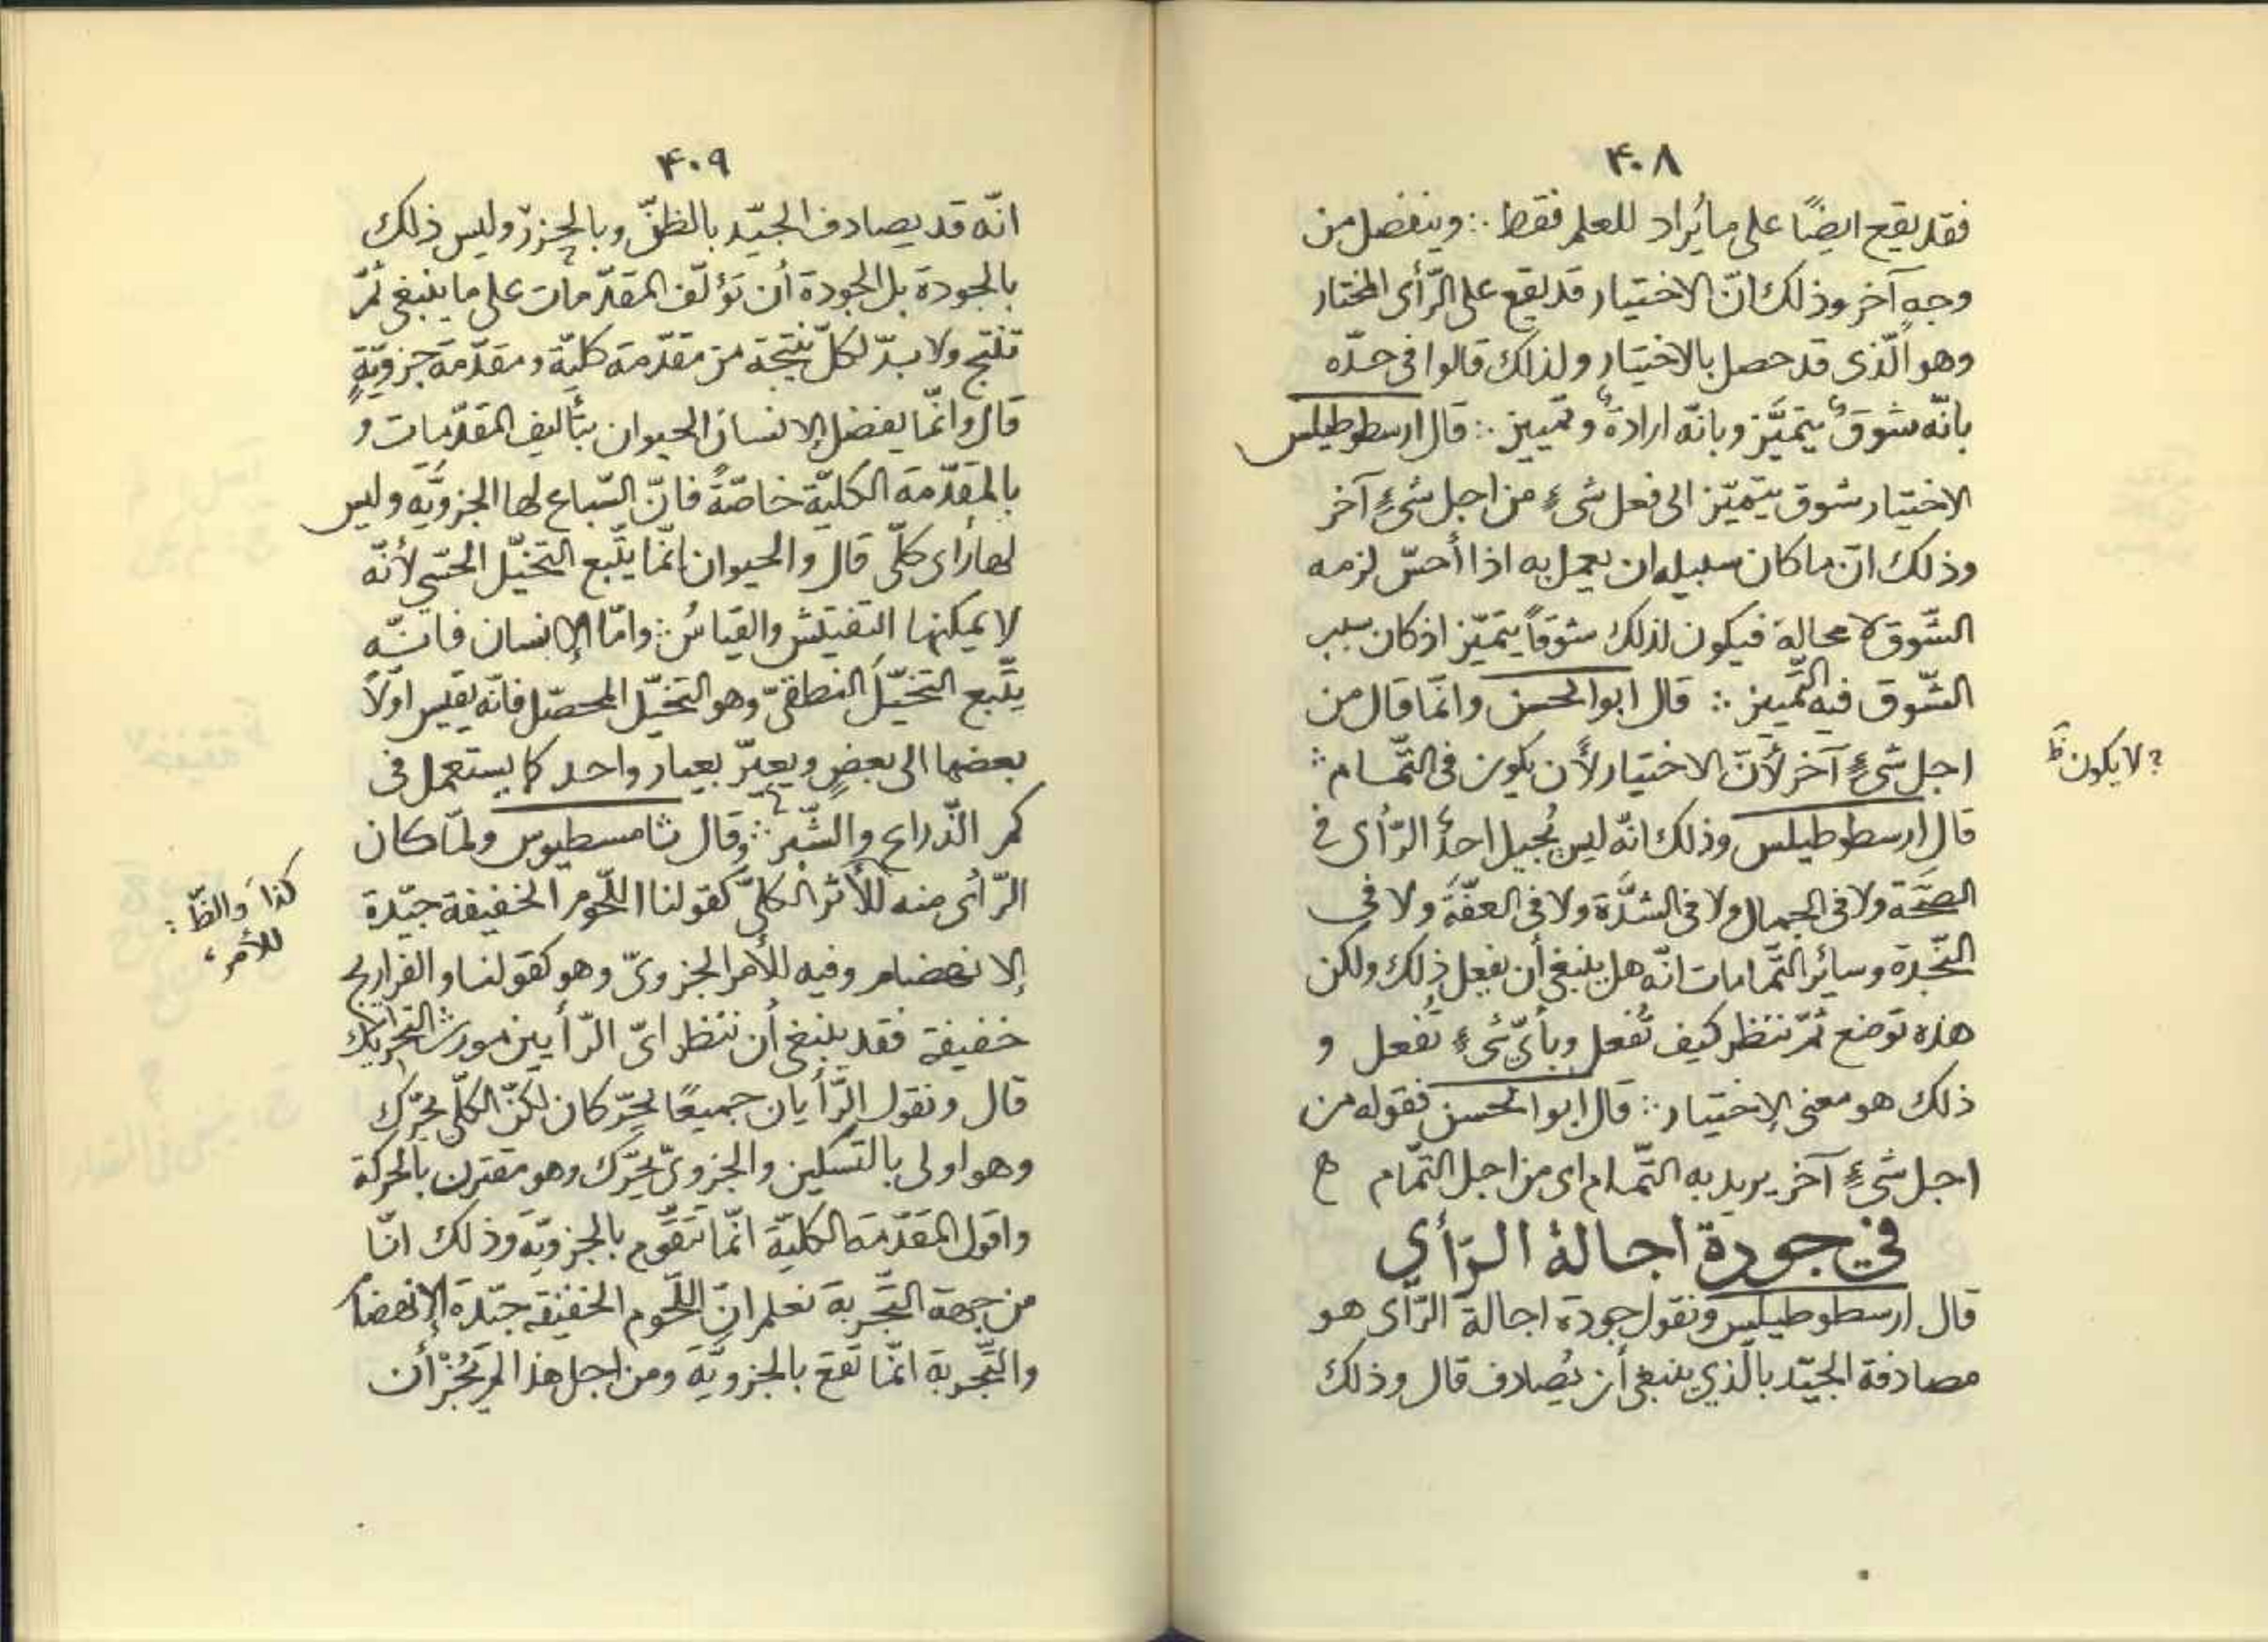 ٤٠٨
فقد يقع ايضًا على ما يُراد للعلم فقط ∴ وينفصل من
وجهٍ آخر وذلك انّ الاختيار قد يقع على الرّأى المختار
وهو الّذى قد حصل بالاختيار ولذلك قالوا فى حدّه
بانّه شوقٌ يتميَّز وبانّه ارادةٌ وتمييز ∴ قال ارسطوطيلس
الاختيار شوق يتميّز الى فعل شىءٍ من اجل شىءٍ آخر
وذلك انّ ما كان سبيله ان يعمل به اذا أحسّ لزمه
الشّوق لا محالة فيكون لذلك شوقاً يتميّز اذ كان سبب
الشّوق فيه التّمييز ∴ قال ابوالحسن وانّما قال من
اجل شىءٍ آخر لأنّ الاختيار لأن يكون فى التّمام ∴
؟ لا يكون ظ
قال ارسطوطيلس وذلك انّه ليس يُجيل احدٌ الرّأى فى
الصّحّة ولا فى الجمال ولا فى الشدَّة ولا فى العفّة ولا فى
النّجدة وسائر التّمامات انّه هل ينبغى أن يفعل ذلك ولكن
هذه توضع ثمّ ننظر كيف تُفعل وبأىّ شىءٍ تُفعل و
ذلك هو معنى الاختيار ∴ قال ابوالحسن فقوله من
اجل شىءٍ آخر يريد به التّمام اى من اجل التّمام ه
في جودة اجالة الرّأي
قال ارسطوطيلس ونقول جودة اجالة الرّأى هو
مصادفة الجيّد بالّذي ينبغى أن يُصادف قال وذلك
٤٠٩
انّه قد يصادف الجيّد بالظنّ وبالحزر وليس ذلك
بالجودة بل الجودة أن تؤلّف المقدّمات على ما ينبغى ثمّ
تنتج ولا بدّ لكلّ نتيجة من مقدّمة كليّة ومقدّمة جزويّةٍ
قال وانّما يفضل الانسان الحيوان بتأليف المقدّمات و
بالمقدّمة الكليّة خاصّةً فانّ السّباع لها الجزويّة وليس
لها رأى كلّى قال والحيوان انّما يتّبع التخيّل الحسّى لأنّه
لا يمكنها التفتيش والقياسُ ∴ وامّا الإنسان فانّه
يتّبع التخيّلَ النطقىّ وهو التخيّل المحصّل فانّه يقيس اوّلاً
بعضها الى بعضٍ ويعيّر بعيار واحد كما يستعمل فى
كم الذّراع والشّبر ∴ وقال ثامسطيوس ولمّا كان
الرّأى منه للأثر الكلّىّ كقولنا اللّحوم الخفيفة جيّدة
كذا والظّ :
للأمر ،
الإنهضام وفيه للأمر الجزوىّ وهو كقولنا والفراريج
خفيفة فقد ينبغى أن ننظر اىّ الرّأيين مورث التحريك
قال ونقول الرّأيان جميعًا يحرّكان لكنّ الكلّى يحرّك
وهو اولى بالتّسكين والجزوىّ يحرّك وهو مقترن بالحركة
واقول المقدّمة الكليّة انّما تتقّوم بالجزويّة وذلك انّا
من جهة التّجربة نعلم انّ اللّحوم الخفيفة جيّدة الإنهضام
والتّجربة انّما تقع بالجزويّة ومن اجل هذا لم يَجُز أن